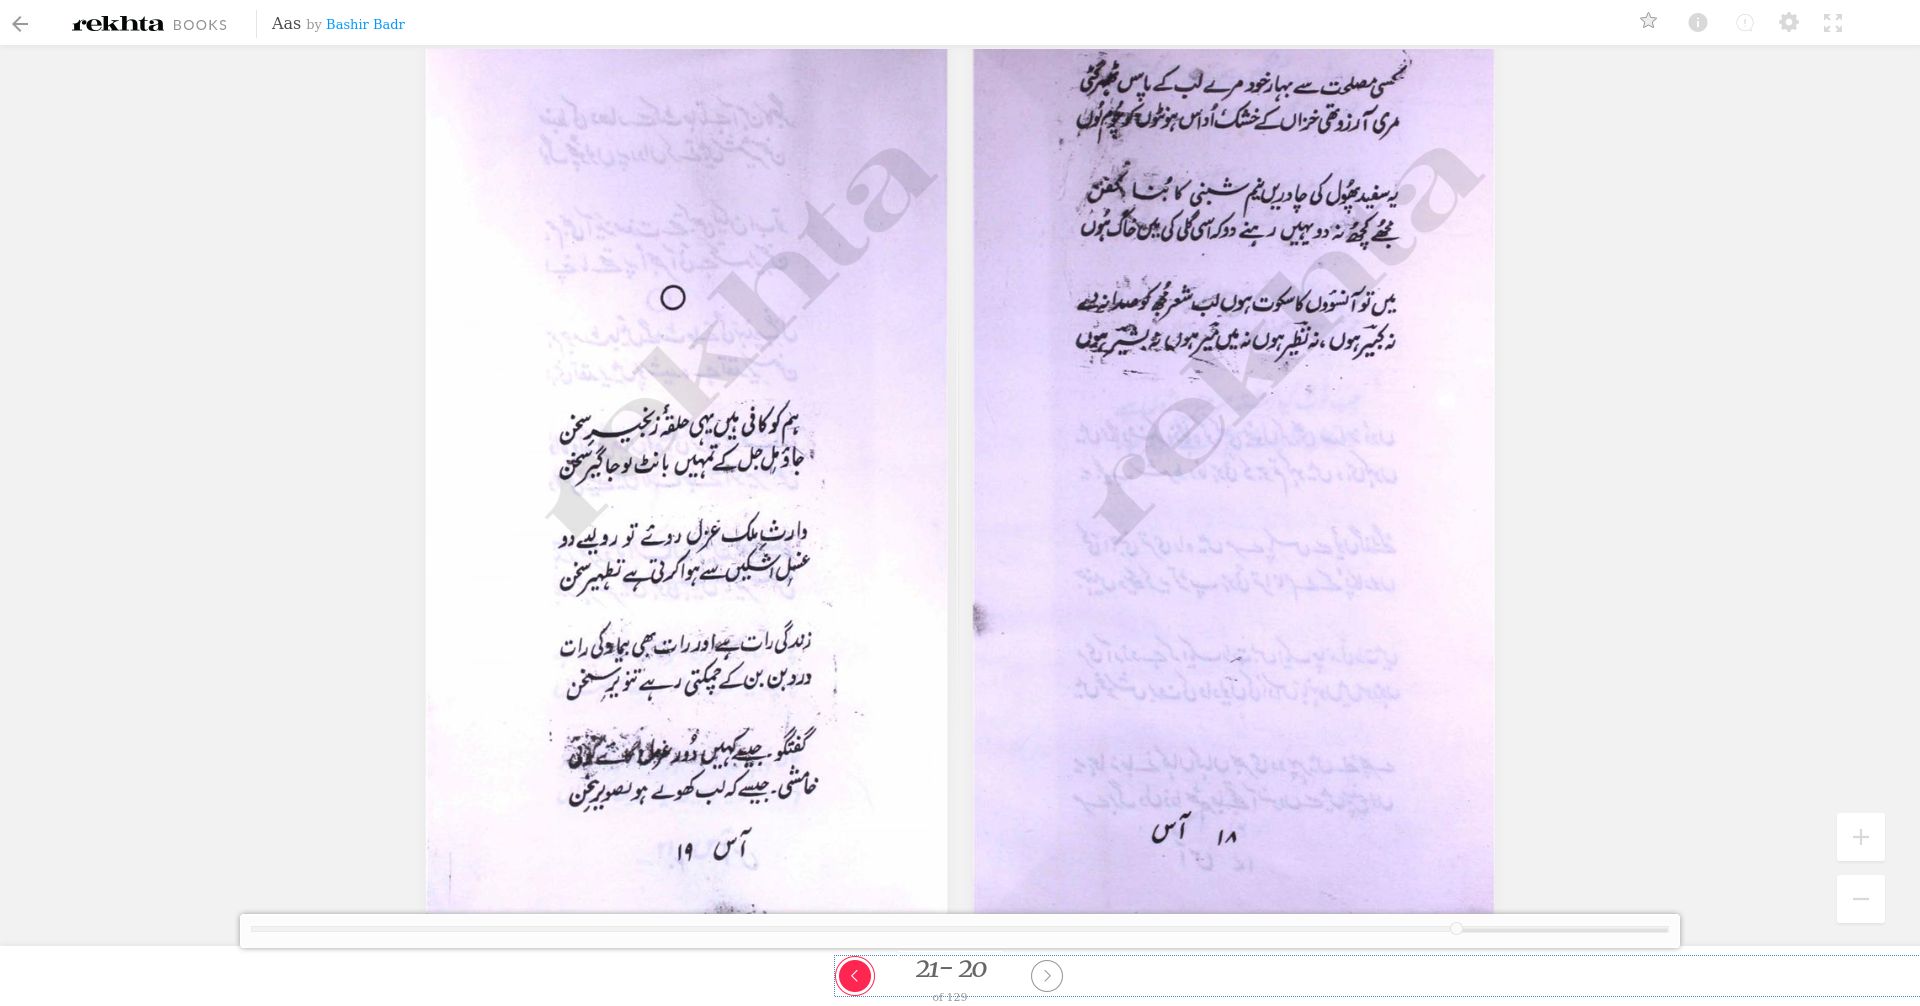 rekhta BOOKS Aas by Bashir Badr
کسی مصلحت سے بہار خود مرے لب کے پاس ٹھہر گئی
مری آرزو تھی خزاں کے خشک اُداس ہونٹوں کو چوم لوں
یہ سفید پھول کی چادریں نیم شبنمی کا بُنا کفن
مجھے کچھ نہ دو یہیں رہنے دو کہ اسی گلی کی میں خاک ہوں
میں تو آنسوؤں کا سکوت ہوں لب شعر مجھ کو صدا نہ دے
نہ کبیر ہوں ، نہ نظیر ہوں نہ میں میر ہوں نہ بشیر ہوں
۱۸ آس
ہم کو کافی ہیں یہی حلقۂ زنجیرِ سخن
جاؤ مِل جل کے تمہیں بانٹ لو جاگیرِ سخن
وارثِ ملک غزل روئے تو رو لینے دو
غسلِ اشکیں سے ہوا کرتی ہے تطہیرِ سخن
زندگی رات ہے اور رات بھی بیمار کی رات
درد بن بن کے چمکتی رہے تنویرِ سخن
گفتگو۔ جیسے کہیں دُور غزل گائے کوئی
خامشی۔ جیسے کہ لب کھولے ہو تصویرِ سخن
آس ۱۹
rekhta
rekhta
21- 20
of 129